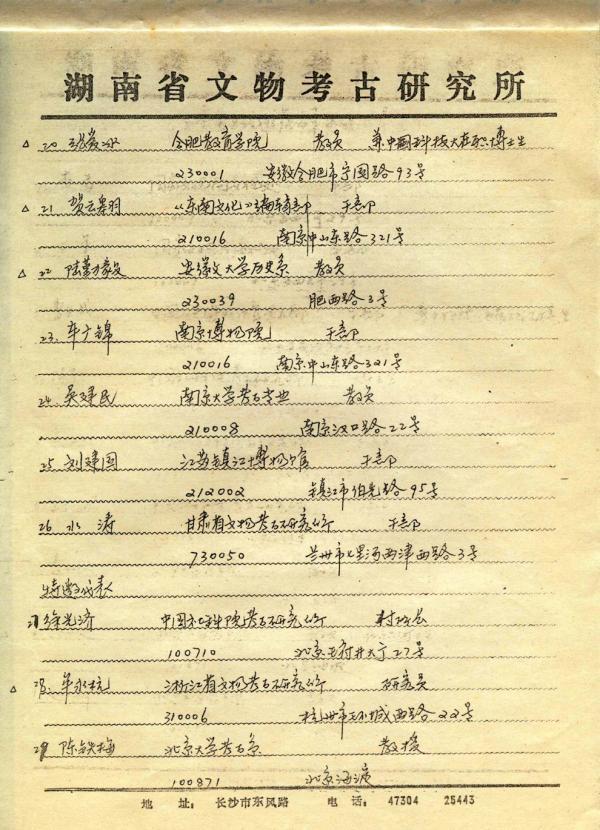 湖南省文物考古研究所
△ 20 张炭冰 合肥教育学院 教员 兼中国科技大在职博士生
230001 安徽合肥市宁国路93号
△ 21. 贺云翱 《东南文化》编辑部 干部
210016 南京中山东路321号
△ 22. 陆勤毅 安徽大学历史系 教员
230039 肥西路3号
23. 车广锦 南京博物院 干部
210016 南京中山东路321号
24. 吴建民 南京大学考古专业 教员
210008 南京汉口路22号
25 刘建国 江苏镇江博物馆 干部
212002 镇江市伯先路95号
26 水涛 甘肃省文物考古研究所 干部
730050 兰州市七里河西津西路3号
特邀代表
27 徐光冀 中国社科院考古研究所
100710 北京王府井大厅27号
△ 28. 牟永抗 浙江省文物考古研究所 研究员
310006 杭州市环城西路22号
29 陈铁梅 北京大学考古系 教授
100871 北京海淀
地 址：长沙市东风路 电 话：47304 25443